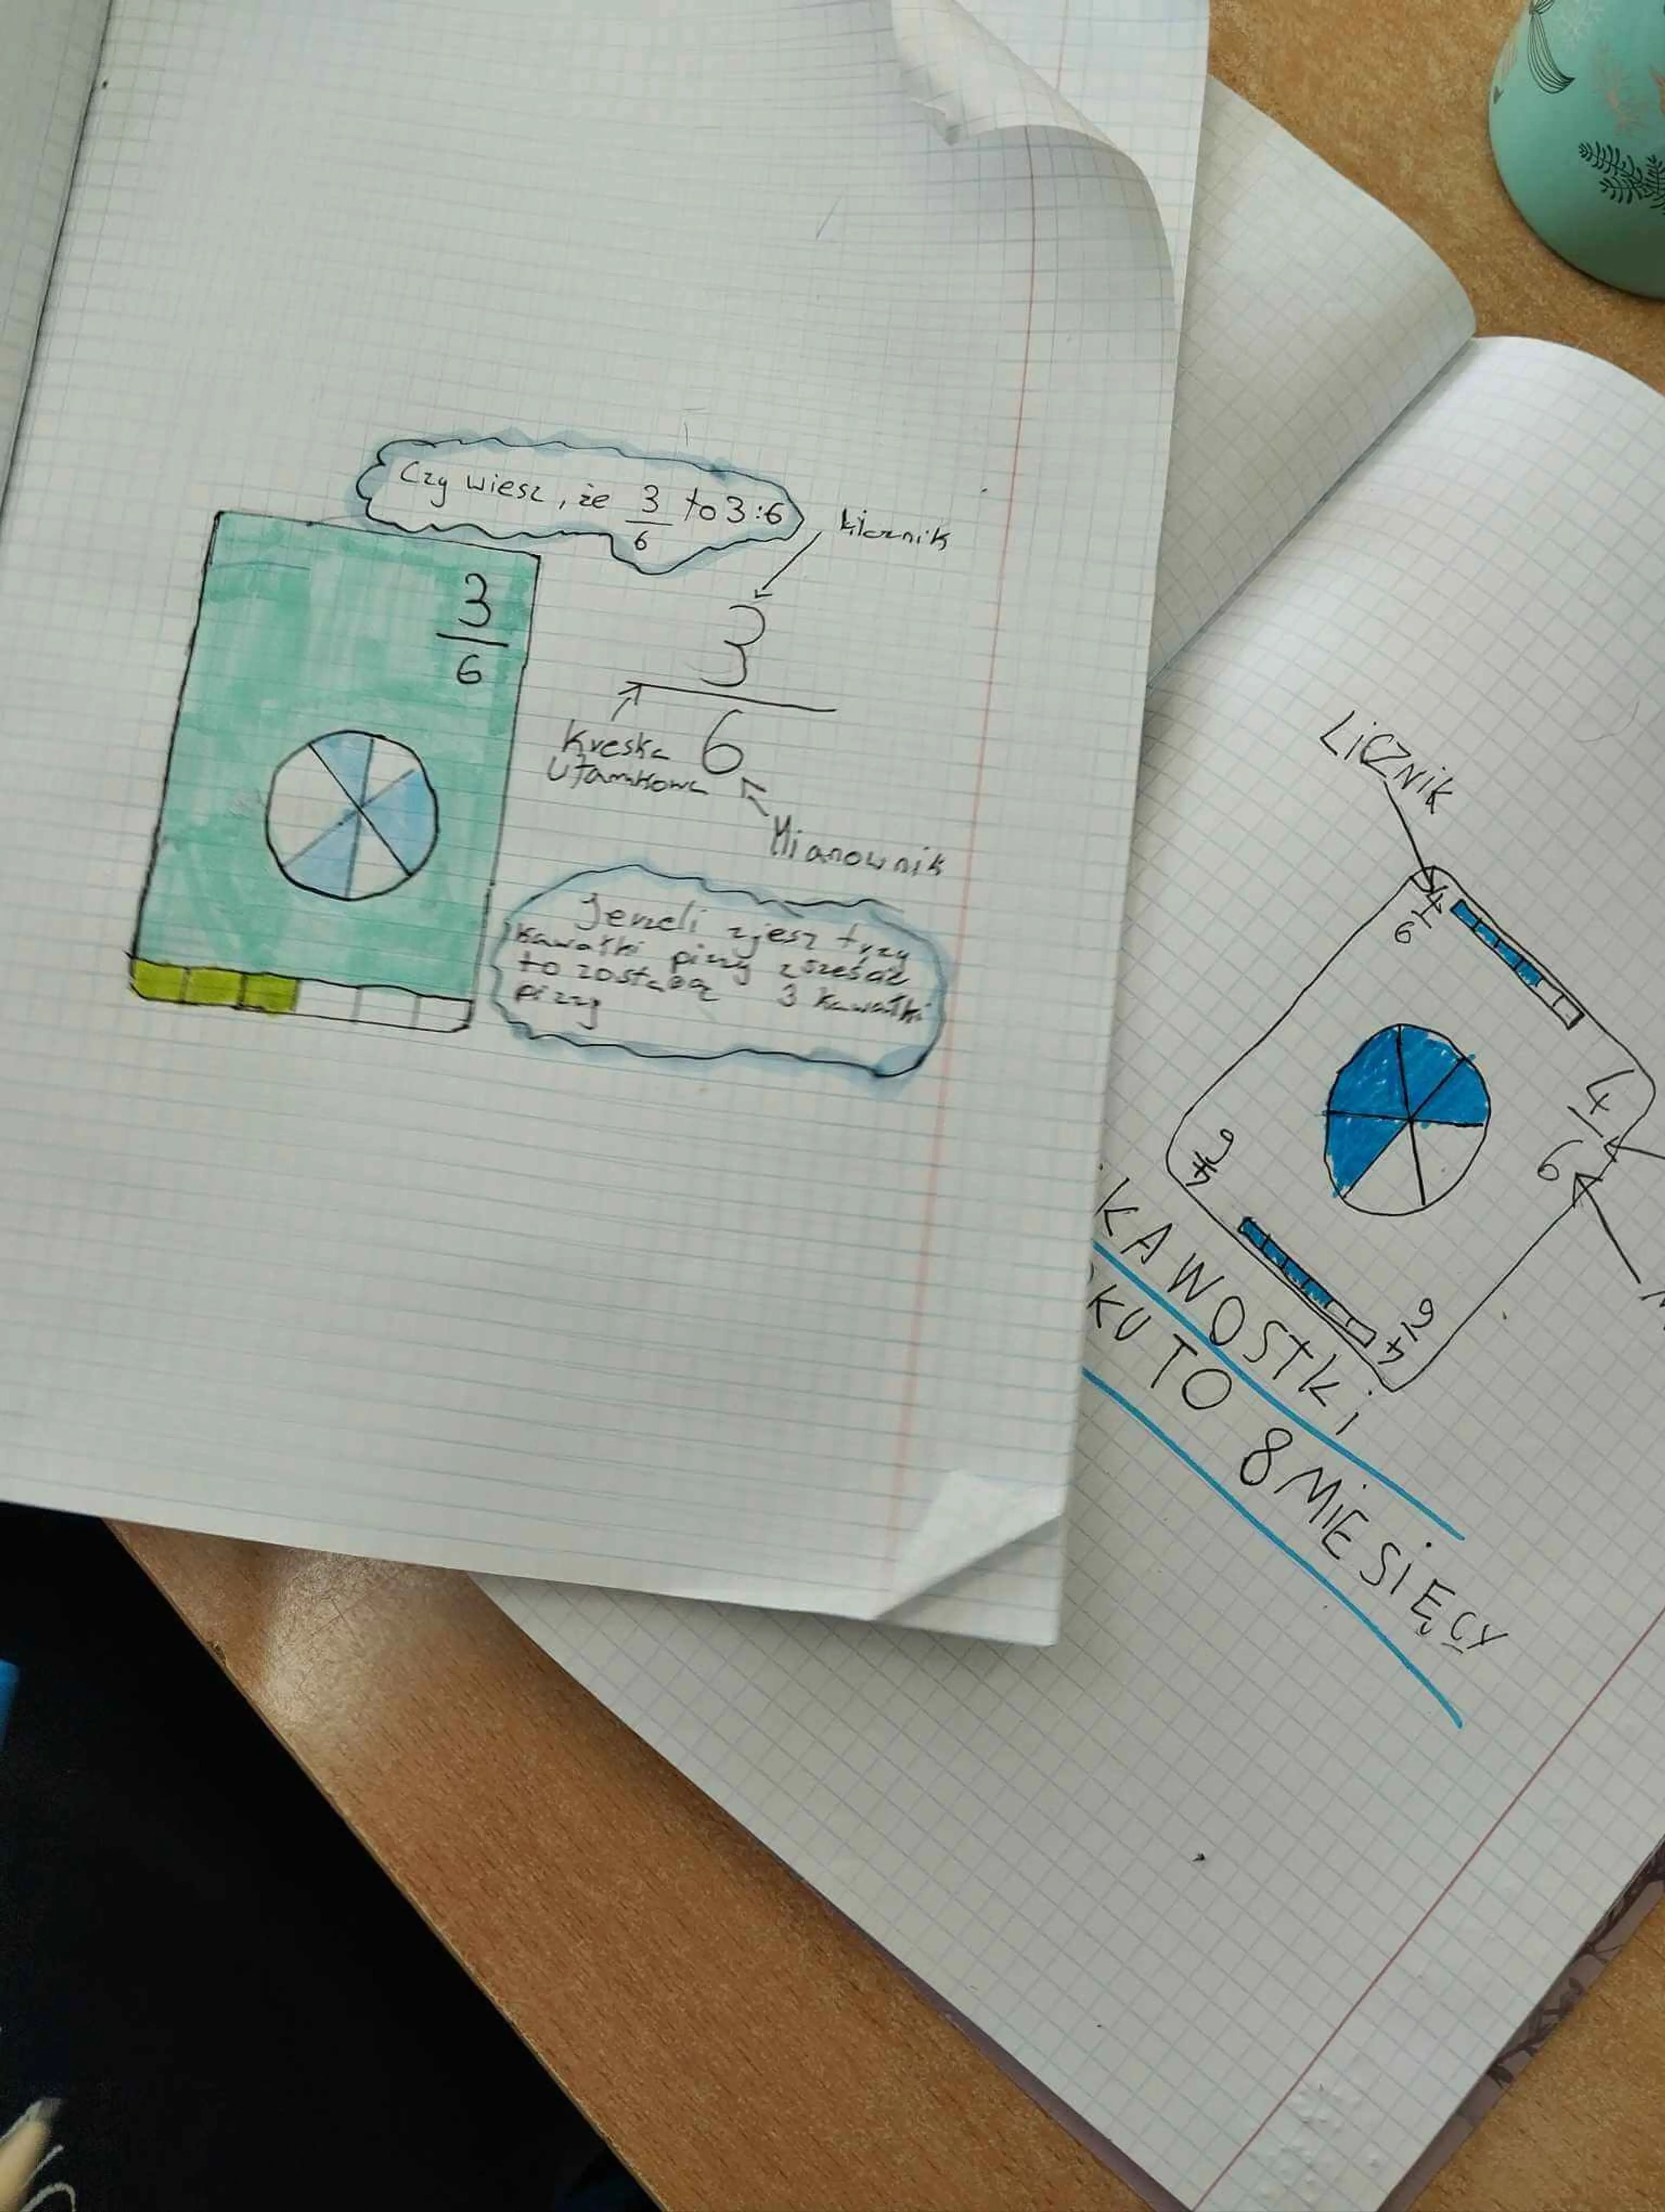 Czy wiesz, że 3/6 to 3:6
Licznik
3
6
3
6
Kreska
Ułamkowa
Mianownik
Jerzeli zjesz trzy
kawałki pizzy z sześciu
to zostaną 3 kawałki
pizzy
LICZNIK
4
6
4
6
4
6
4
6
KAWOSTKI
KU TO 8 MIESIĘCY